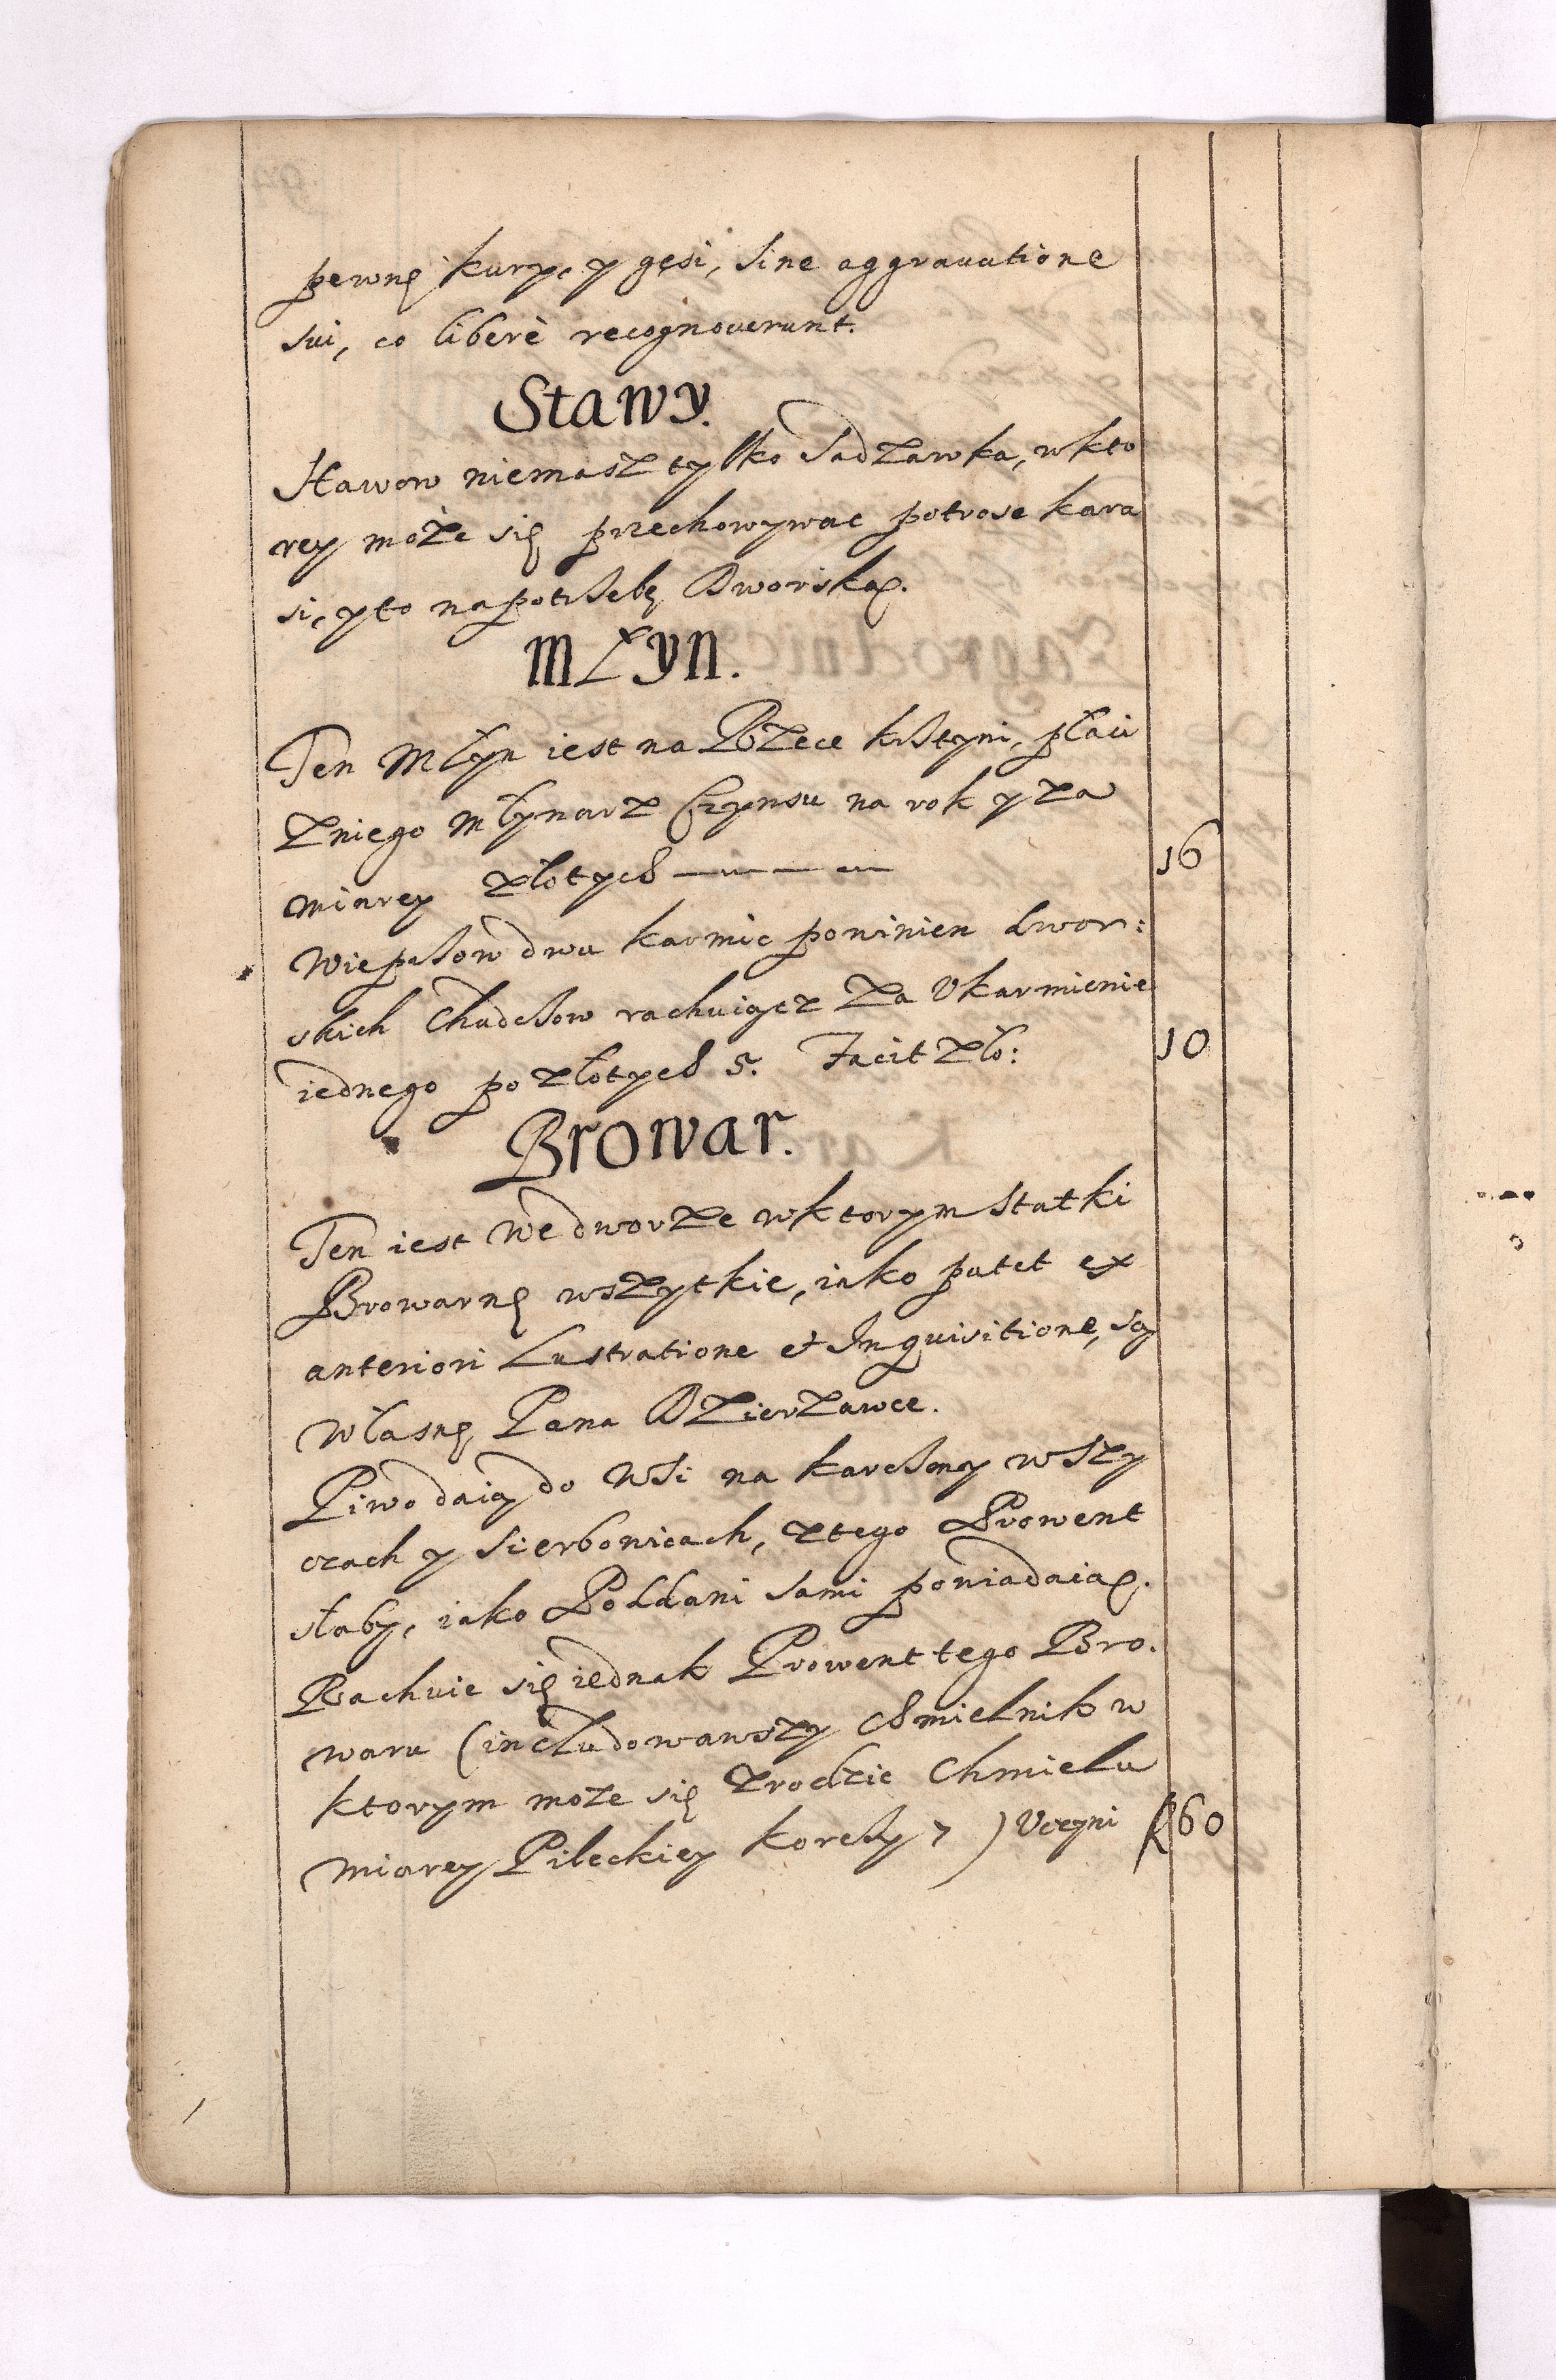 pewnę kury, y gęsi, sine aggrauatione
sui, co liberè recognouerunt.
Stawy.
Stawow niemasz tylko Sadzawka, w kto
rey może się przechowywac potrose kara
si, y to na potrzebę Dworską.
Młyn.
Ten Młyn iest na Rzece krztyni, płaci
z niego Młynarz Czynsu na rok y za
miarey złotych — 16
Wieprzow dwu karmic powinien dwor:
skich Chudszow rachuiącz za Vkarmienie
iednego po złotych 5. Facit zło: 10
Browar.
Ten iest we dworze w ktorym statki
Browarnę wszytkie, iako patet ex
anteriori Lustratione et Inquisitione, są
własnę Pana Dzierzawce.
Piwo daią do Wsi na karczmy w Szy
czach y Sierbowicach, z tego Prowent
słaby, iako Poddani sami powiadaią.
Rachuie się iednak Prowent tego Bro.
waru (includowawszy Chmielnik w
ktorym moze się zrodzic Chmielu
miarey Pileckiey korczy 7) Vczyni 60